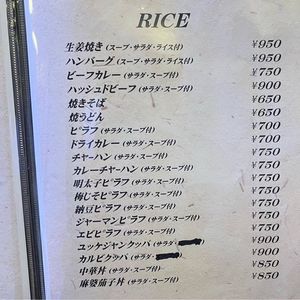 RICE
生姜焼き (スープ・サラダ・ライス付) ¥950
ハンバーグ (スープ・サラダ・ライス付) ¥950
ビーフカレー (サラダ・スープ付) ¥750
ハッシュドビーフ (サラダ・スープ付) ¥900
焼きそば ¥650
焼うどん ¥650
ピラフ (サラダ・スープ付) ¥700
ドライカレー (サラダ・スープ付) ¥700
チャーハン (サラダ・スープ付) ¥750
カレーチャーハン (サラダ・スープ付) ¥750
明太子ピラフ (サラダ・スープ付) ¥750
梅じそピラフ (サラダ・スープ付) ¥750
納豆ピラフ (サラダ・スープ付) ¥750
ジャーマンピラフ (サラダ・スープ付) ¥750
エビピラフ (サラダ・スープ付) ¥750
ユッケジャンクッパ (サラダ・ ¥900
カルビクッパ (サラダ・ ¥900
中華丼 (サラダ・スープ付) ¥850
麻婆茄子丼 (サラダ・スープ付) ¥850